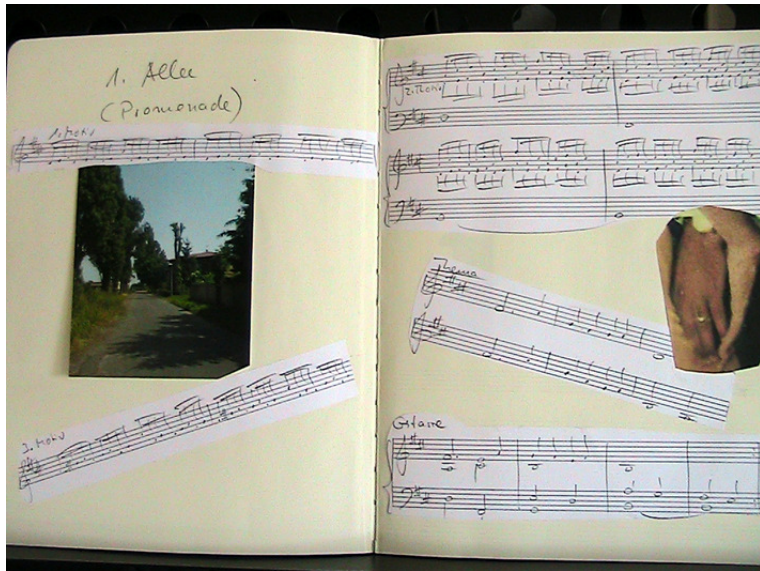 1. Allee
(Promenade)
1. Motiv
3. Motiv
2. Motiv
Thema
Gitarre